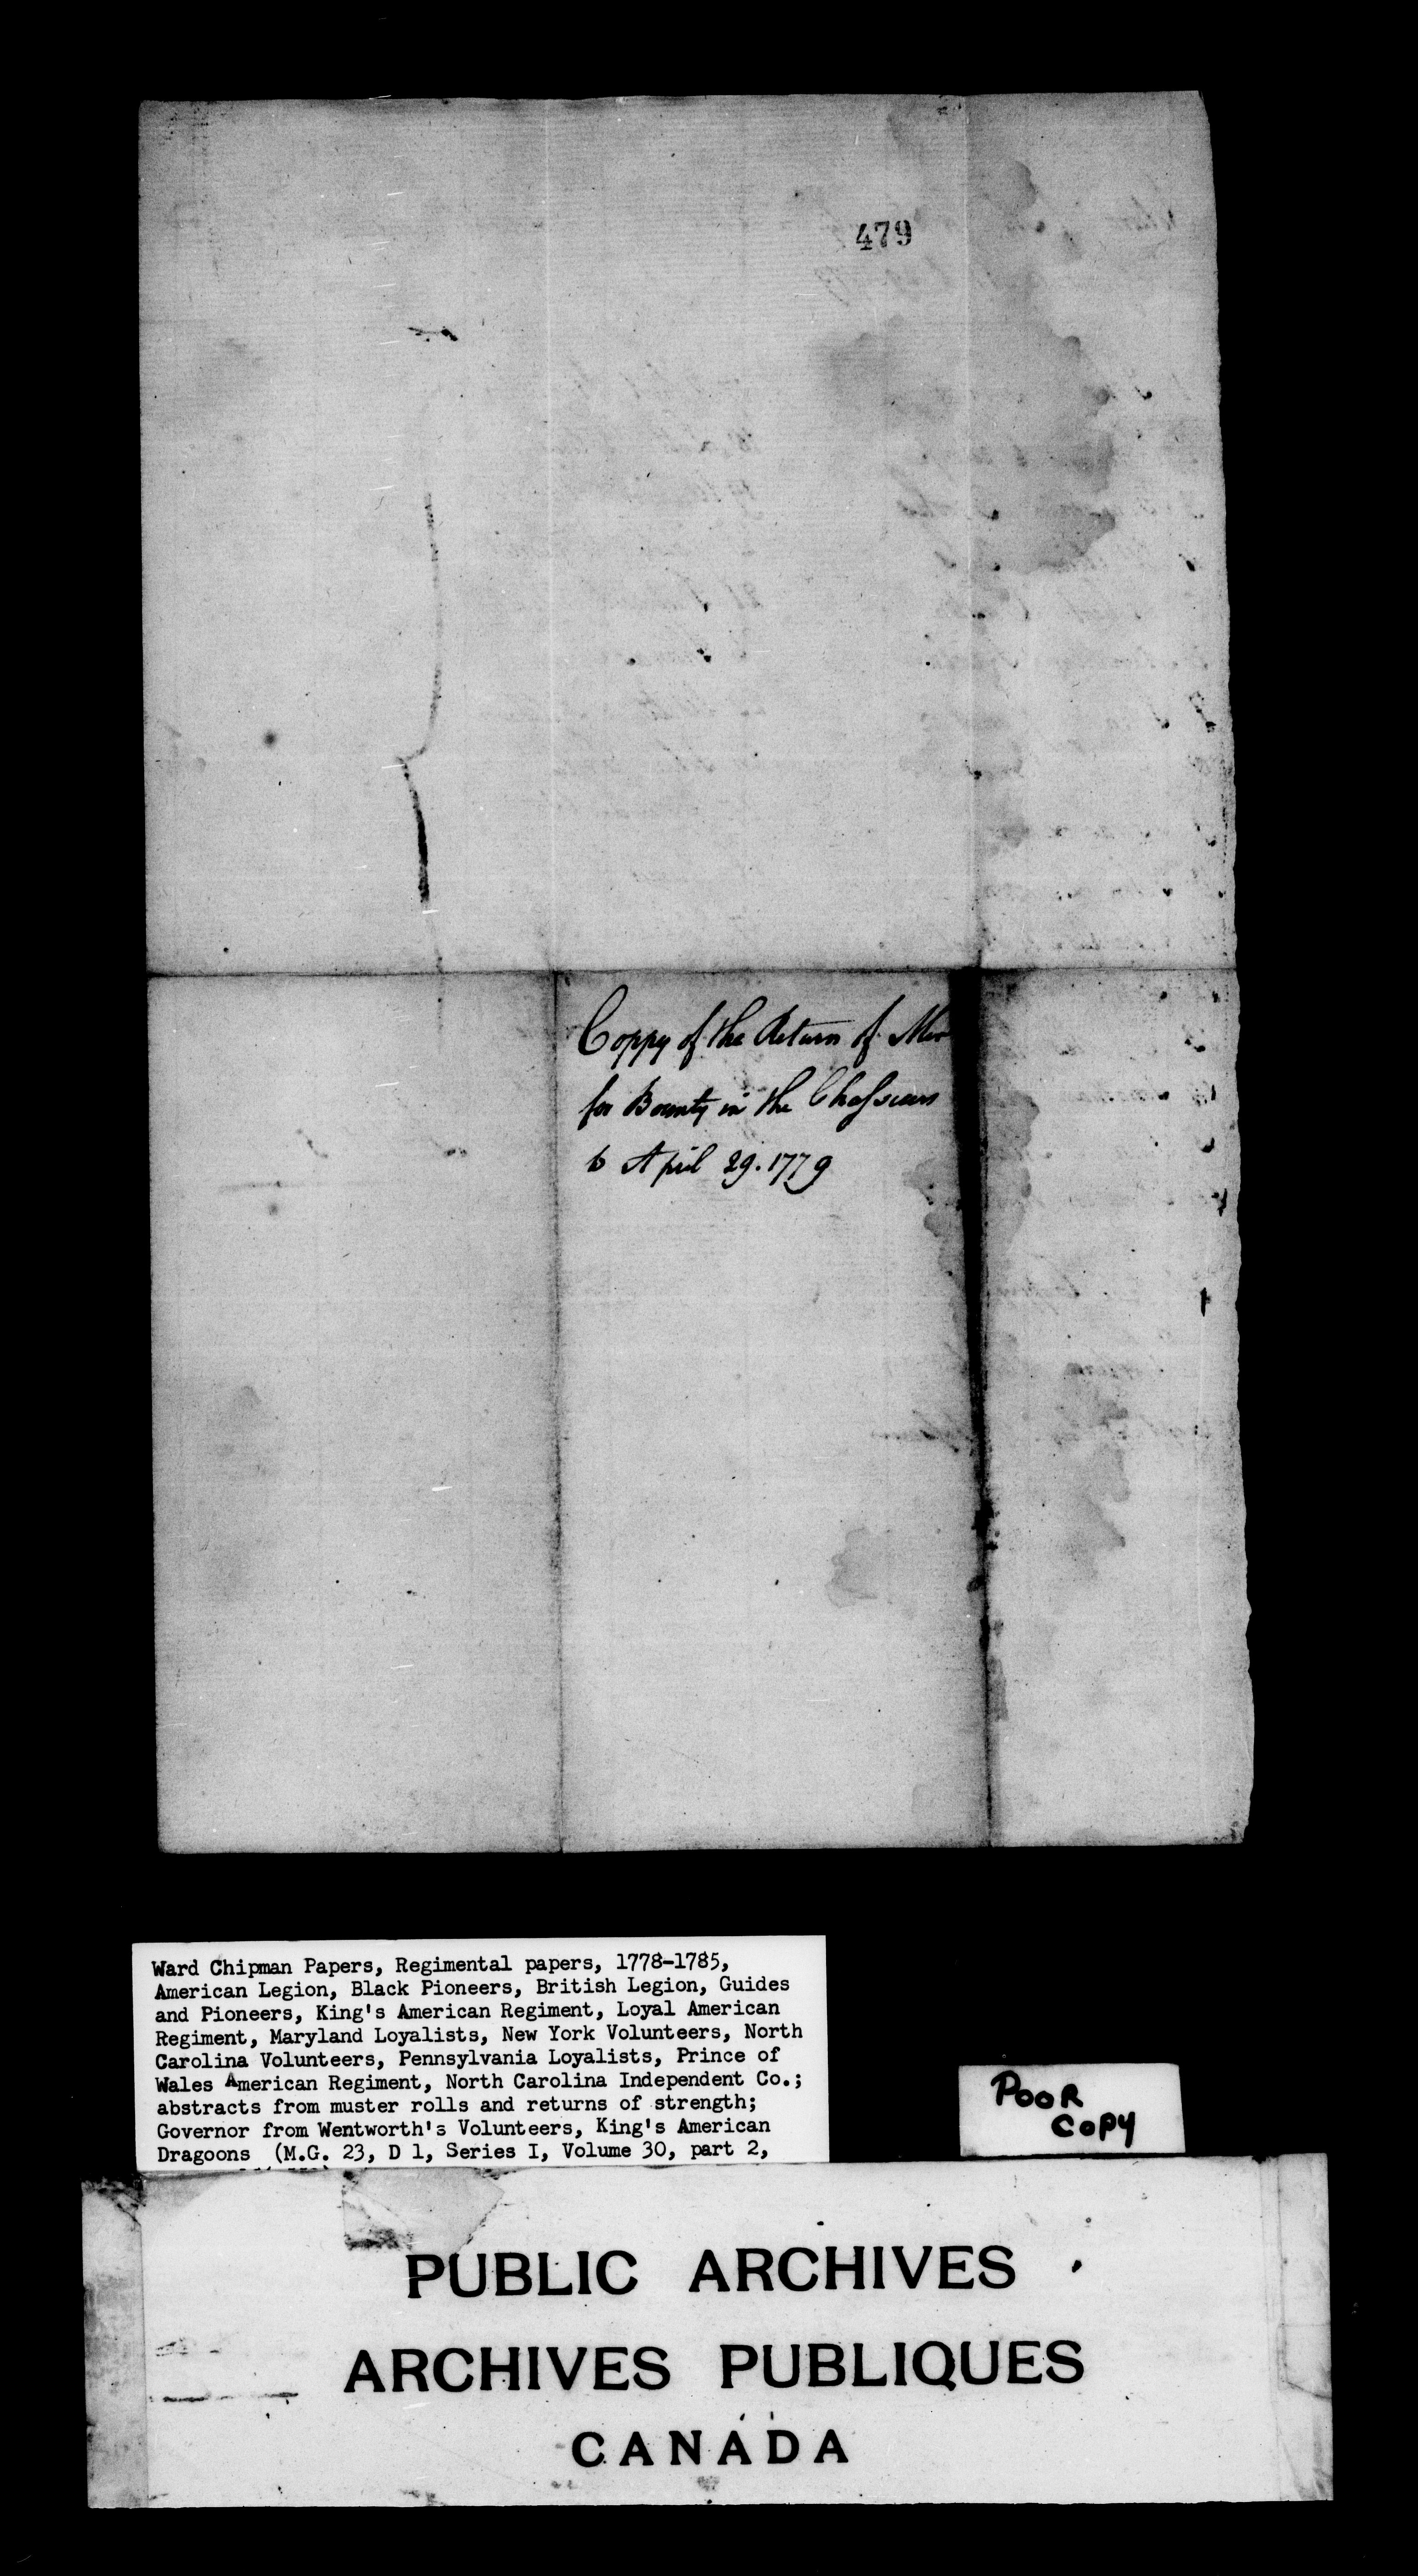 479
Coppy of the Return of Men
for Bounty in the Chasseurs
to April 29. 1779
Ward Chipman Papers, Regimental papers, 1778-1785,
American Legion, Black Pioneers, British Legion, Guides
and Pioneers, King's American Regiment, Loyal American
Regiment, Maryland Loyalists, New York Volunteers, North
Carolina Volunteers, Pennsylvania Loyalists, Prince of
Wales American Regiment, North Carolina Independent Co.;
abstracts from muster rolls and returns of strength;
Governor from Wentworth's Volunteers, King's American
Dragoons (M.G. 23, D 1, Series I, Volume 30, part 2,
POOR
COPY
PUBLIC ARCHIVES
ARCHIVES PUBLIQUES
CANADA